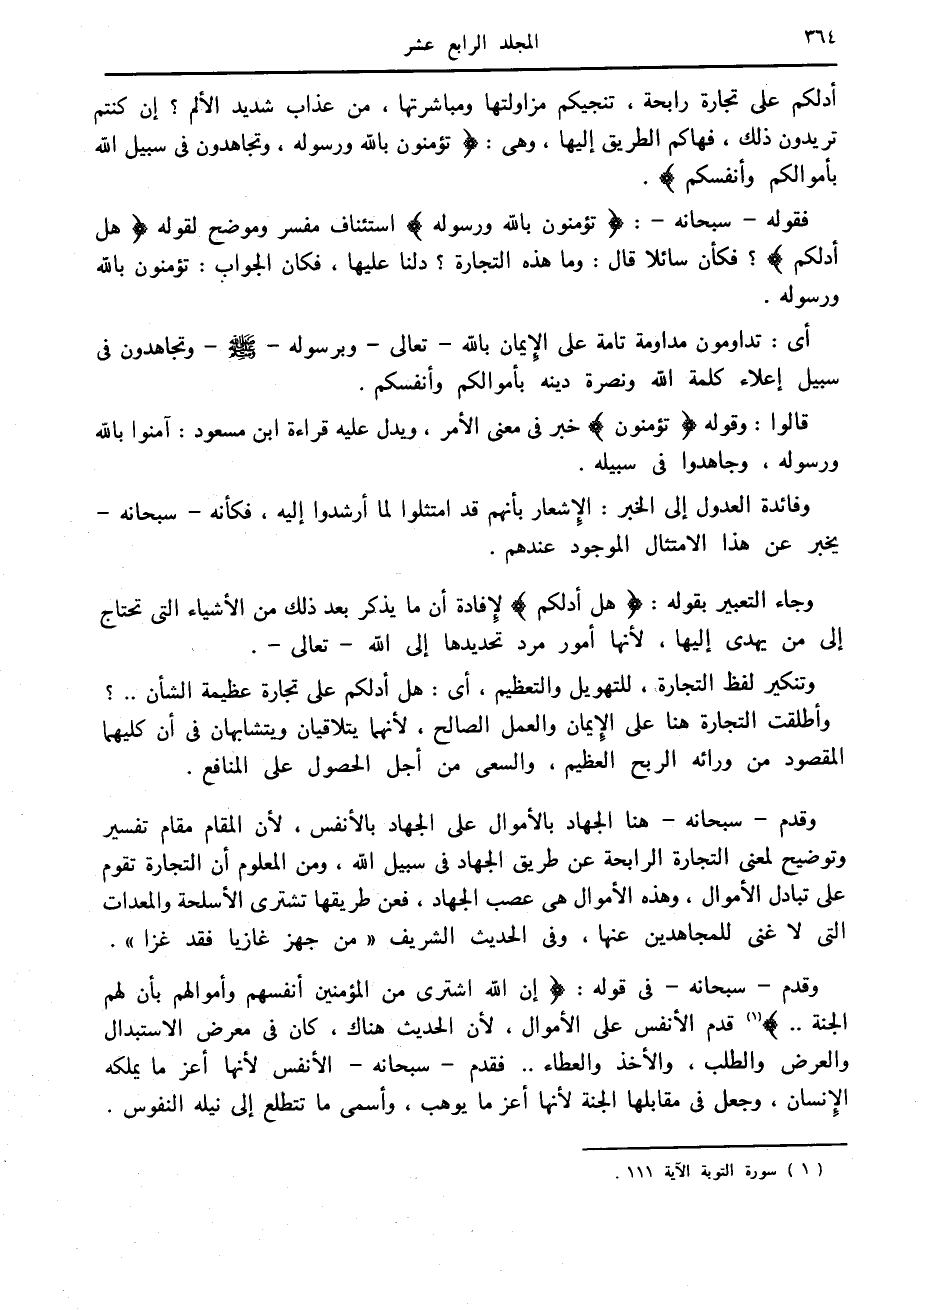 ٣٦٤
المجلد الرابع عشر
أدلكم على تجارة رابحة ، تنجيكم مزاولتها ومباشرتها ، من عذاب شديد الألم ؟ إن كنتم
تريدون ذلك ، فهاكم الطريق إليها ، وهى : ﴿ تؤمنون بالله ورسوله ، وتجاهدون فى سبيل الله
بأموالكم وأنفسكم ﴾ .
فقوله – سبحانه – : ﴿ تؤمنون بالله ورسوله ﴾ استئناف مفسر وموضح لقوله ﴿ هل
أدلكم ﴾ ؟ فكأن سائلا قال : وما هذه التجارة ؟ دلنا عليها ، فكان الجواب : تؤمنون بالله
ورسوله .
أى : تداومون مداومة تامة على الإيمان بالله – تعالى – وبرسوله – ﷺ – وتجاهدون فى
سبيل إعلاء كلمة الله ونصرة دينه بأموالكم وأنفسكم .
قالوا : وقوله ﴿ تؤمنون ﴾ خبر فى معنى الأمر ، ويدل عليه قراءة ابن مسعود : آمنوا بالله
ورسوله ، وجاهدوا فى سبيله .
وفائدة العدول إلى الخبر : الإشعار بأنهم قد امتثلوا لما أرشدوا إليه ، فكأنه – سبحانه –
يخبر عن هذا الامتثال الموجود عندهم .
وجاء التعبير بقوله : ﴿ هل أدلكم ﴾ لإفادة أن ما يذكر بعد ذلك من الأشياء التى تحتاج
إلى من يهدى إليها ، لأنها أمور مرد تحديدها إلى الله – تعالى – .
وتنكير لفظ التجارة ، للتهويل والتعظيم ، أى : هل أدلكم على تجارة عظيمة الشأن .. ؟
وأطلقت التجارة هنا على الإيمان والعمل الصالح ، لأنهما يتلاقيان ويتشابهان فى أن كليهما
المقصود من ورائه الربح العظيم ، والسعى من أجل الحصول على المنافع .
وقدم – سبحانه – هنا الجهاد بالأموال على الجهاد بالأنفس ، لأن المقام مقام تفسير
وتوضيح لمعنى التجارة الرابحة عن طريق الجهاد فى سبيل الله ، ومن المعلوم أن التجارة تقوم
على تبادل الأموال ، وهذه الأموال هى عصب الجهاد ، فعن طريقها تشترى الأسلحة والمعدات
التى لا غنى للمجاهدين عنها ، وفى الحديث الشريف « من جهز غازيا فقد غزا » .
وقدم – سبحانه – فى قوله : ﴿ إن الله اشترى من المؤمنين أنفسهم وأموالهم بأن لهم
الجنة .. ﴾(١) قدم الأنفس على الأموال ، لأن الحديث هناك ، كان فى معرض الاستبدال
والعرض والطلب ، والأخذ والعطاء .. فقدم – سبحانه – الأنفس لأنها أعز ما يملكه
الإنسان ، وجعل فى مقابلها الجنة لأنها أعز ما يوهب ، وأسمى ما تتطلع إلى نيله النفوس .
( ١ ) سورة التوبة الآية ١١١ .